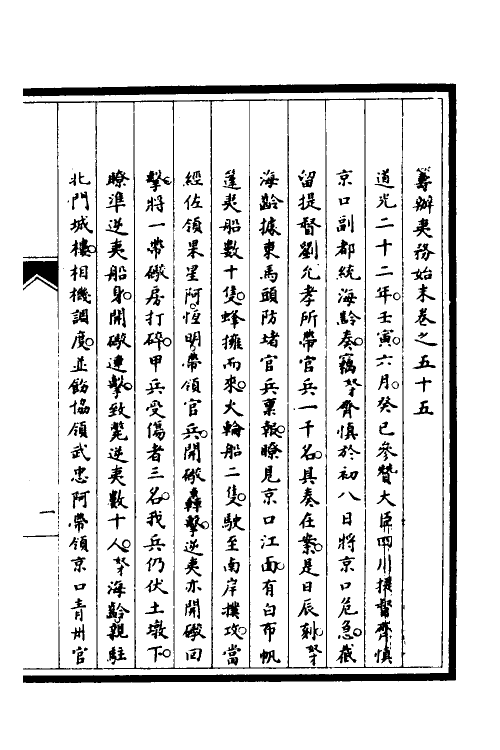 籌辦夷務始末卷之五十五
道光二十二年。壬寅。六月。癸巳參贊大臣四川提督齊慎
京口副都統海齡奏。竊奴才齊慎於初八日將京口危急。截
留提督劉允孝所帶官兵一千名。具奏在案。是日辰刻。奴才
海齡據東馬頭防堵官兵稟報。瞭見京口江面。有白布帆
篷夷船數十隻。蜂擁而來。火輪船二隻。駛至南岸撲攻。當
經佐領果星阿。恆明。帶領官兵。開礮轟擊。逆夷亦開礮回
擊。將一帶礮房打碎。甲兵受傷者三名。我兵仍伏土墩下。
瞭準逆夷船身。開礮連擊。致斃逆夷數十人。奴才海齡親駐
北門城樓。相機調度。並飭協領武忠阿帶領京口青州官
一